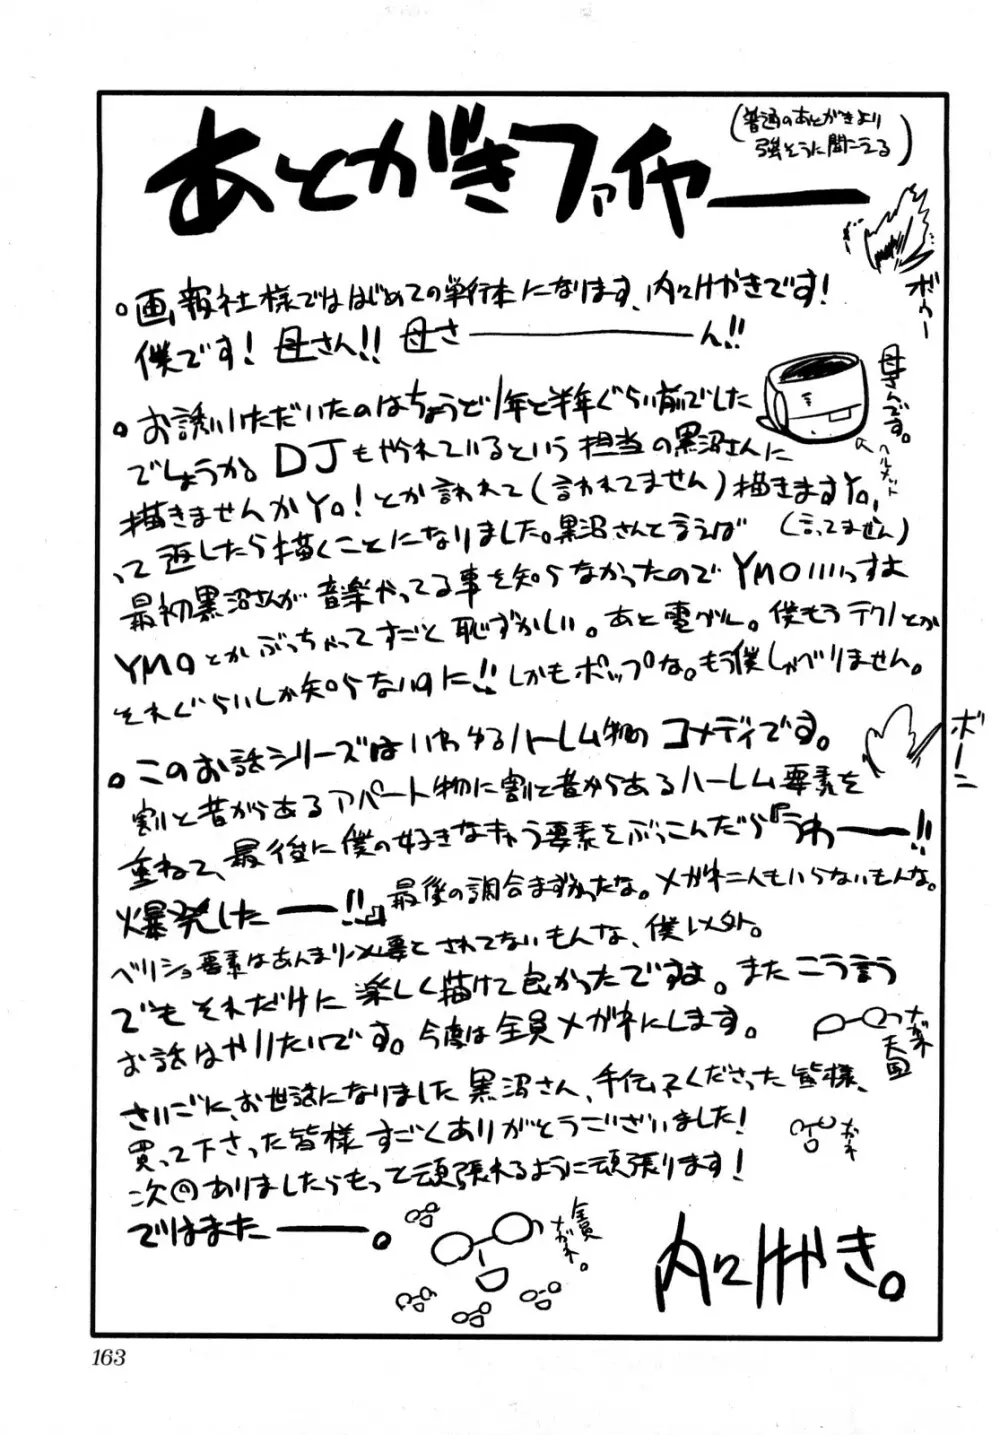 あとがきファイヤー
(普通のあとがきより
強そうに聞こえる)
ボゥー
。画報社様でははじめての単行本になります、内々けやきです!
僕です!母さん!!母さ――ん!!
母さんです。
ヘルメット
。お誘いいただいたのはちょうど1年と半年ぐらい前でした
でしょうか。DJもやられているという担当の黒沼さんに
描きませんかYo!とか言われて(言われてません)描きますYo,
って返したら描くことになりました。黒沼さんと言えば(言ってません)
最初黒沼さんが音楽やってる事を知らなかったのでYMOいいっすよ
YMOとかぶっちゃってすごく恥ずかしい。あと電グル。僕もうテクノとか
それぐらいしか知らないのに!!しかもポップな。もう僕しゃべりません。
ボーン
。このお話シリーズはいわゆるハーレム物のコメディです。
割と昔からあるアパート物に割と昔からあるハーレム要素を
重ねて、最後に僕の好きなキャラ要素をぶっこんだら『うわー!!
爆発したー!!』最後の調合まずかったな。メガネ二人もいらないもんな。
ベリショ要素はあんまり必要とされてないもんな、僕以外。
でもそれだけに楽しく描けて良かったですよ。またこう言う
お話はやりたいです。今度は全員メガネにします。
メガネ
天国
さいごに、お世話になりました黒沼さん、手伝ってくださった皆様、
買って下さった皆様すごくありがとうございました!
次回ありましたらもっと頑張れるように頑張ります!
ではまたー。
全員
メガネ。
内々けやき。
163